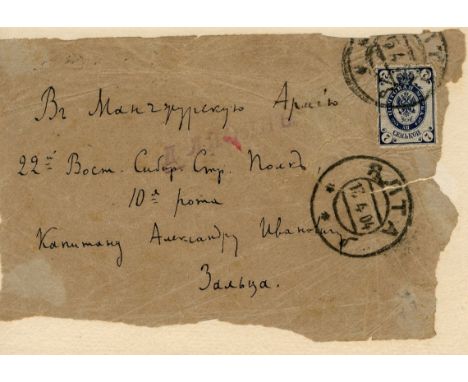 Въ Манчжурскую Армію
22й Вост. Сибир. Стр. Полкъ,
10я рота
Капитану Александру Ивановичу
Зальца.
ЯЛТА
16 4 04
7
7
СЕМЬ КОП